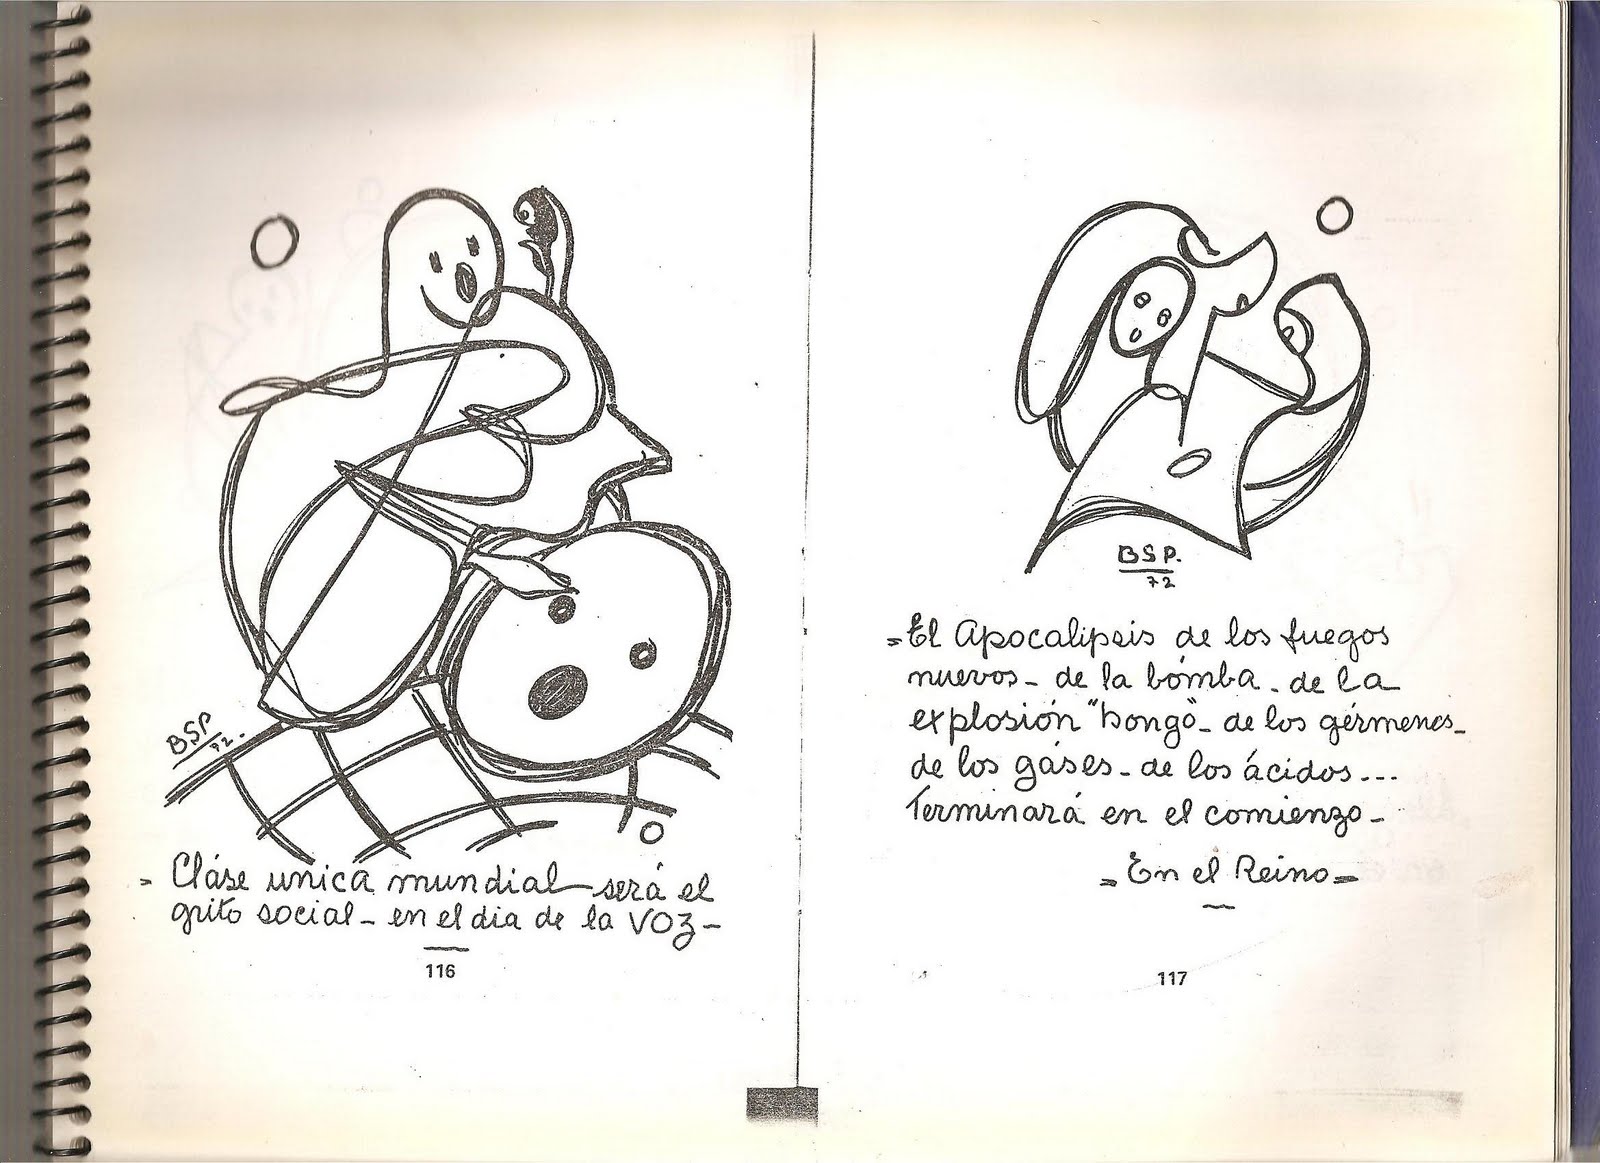 BSP
72.
= Cláse unica mundial será el
grito social - en el dia de la voz -
116
BSP.
72
= El Apocalipsis de los fuegos
nuevos - de la bómba - de la
explosión "hongo" - de los gérmenes -
de los gáses - de los ácidos ...
Terminará en el comienzo -
= En el Reino =
117